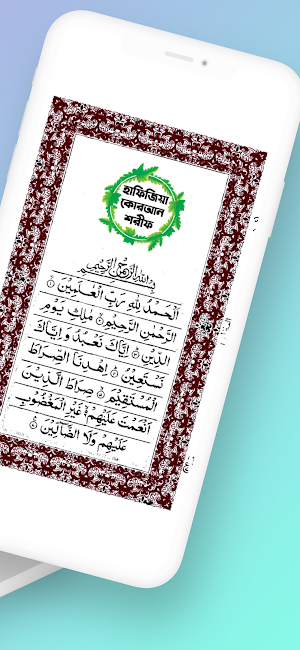 হাফিজিয়া
কোরআন
শরীফ
بسم الله الرحمن الرحيم
اَلْحَمْدُ لِلّٰهِ رَبِّ الْعٰلَمِيْنَ ۝١
الرَّحْمٰنِ الرَّحِيْمِ ۝٢ مٰلِكِ يَوْمِ
الدِّيْنِ ۝٣ اِيَّاكَ نَعْبُدُ وَ اِيَّاكَ
نَسْتَعِيْنُ ۝٤ اِهْدِنَا الصِّرَاطَ
الْمُسْتَقِيْمَ ۝٥ صِرَاطَ الَّذِيْنَ
اَنْعَمْتَ عَلَيْهِمْ ۝٦ غَيْرِ الْمَغْضُوْبِ
عَلَيْهِمْ وَلَا الضَّآلِّيْنَ ۝٧